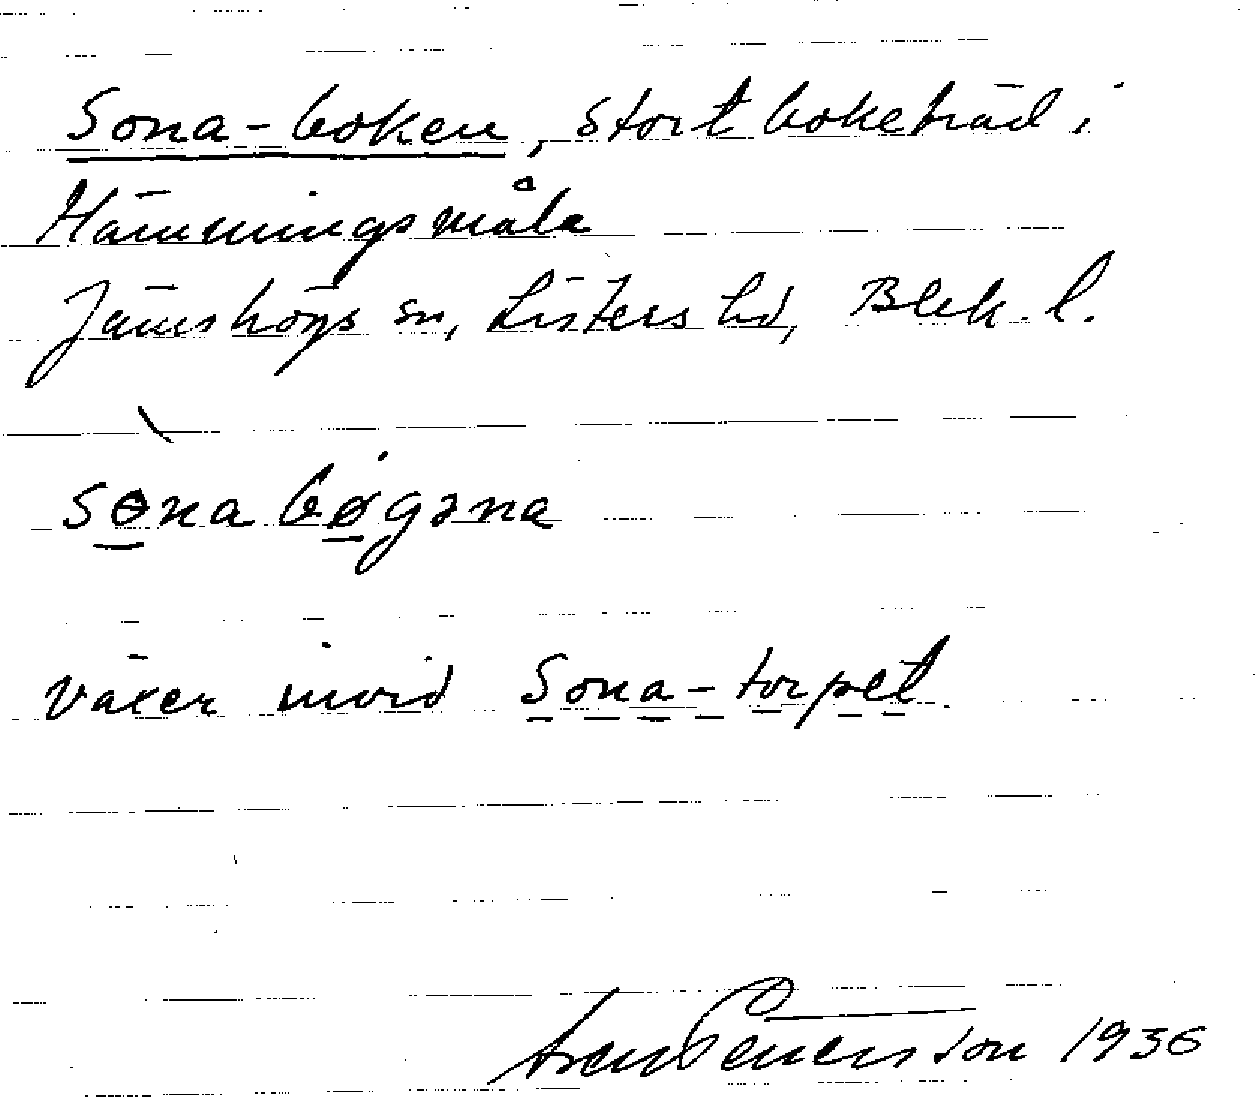 Sona-boken, stort boketräd i
Hämmingsmåla
Jämshögs sn, Listers hd, Blek. l.
sɵna bøgəna
växer invid Sona-torpet.
Sven Petersson 1936